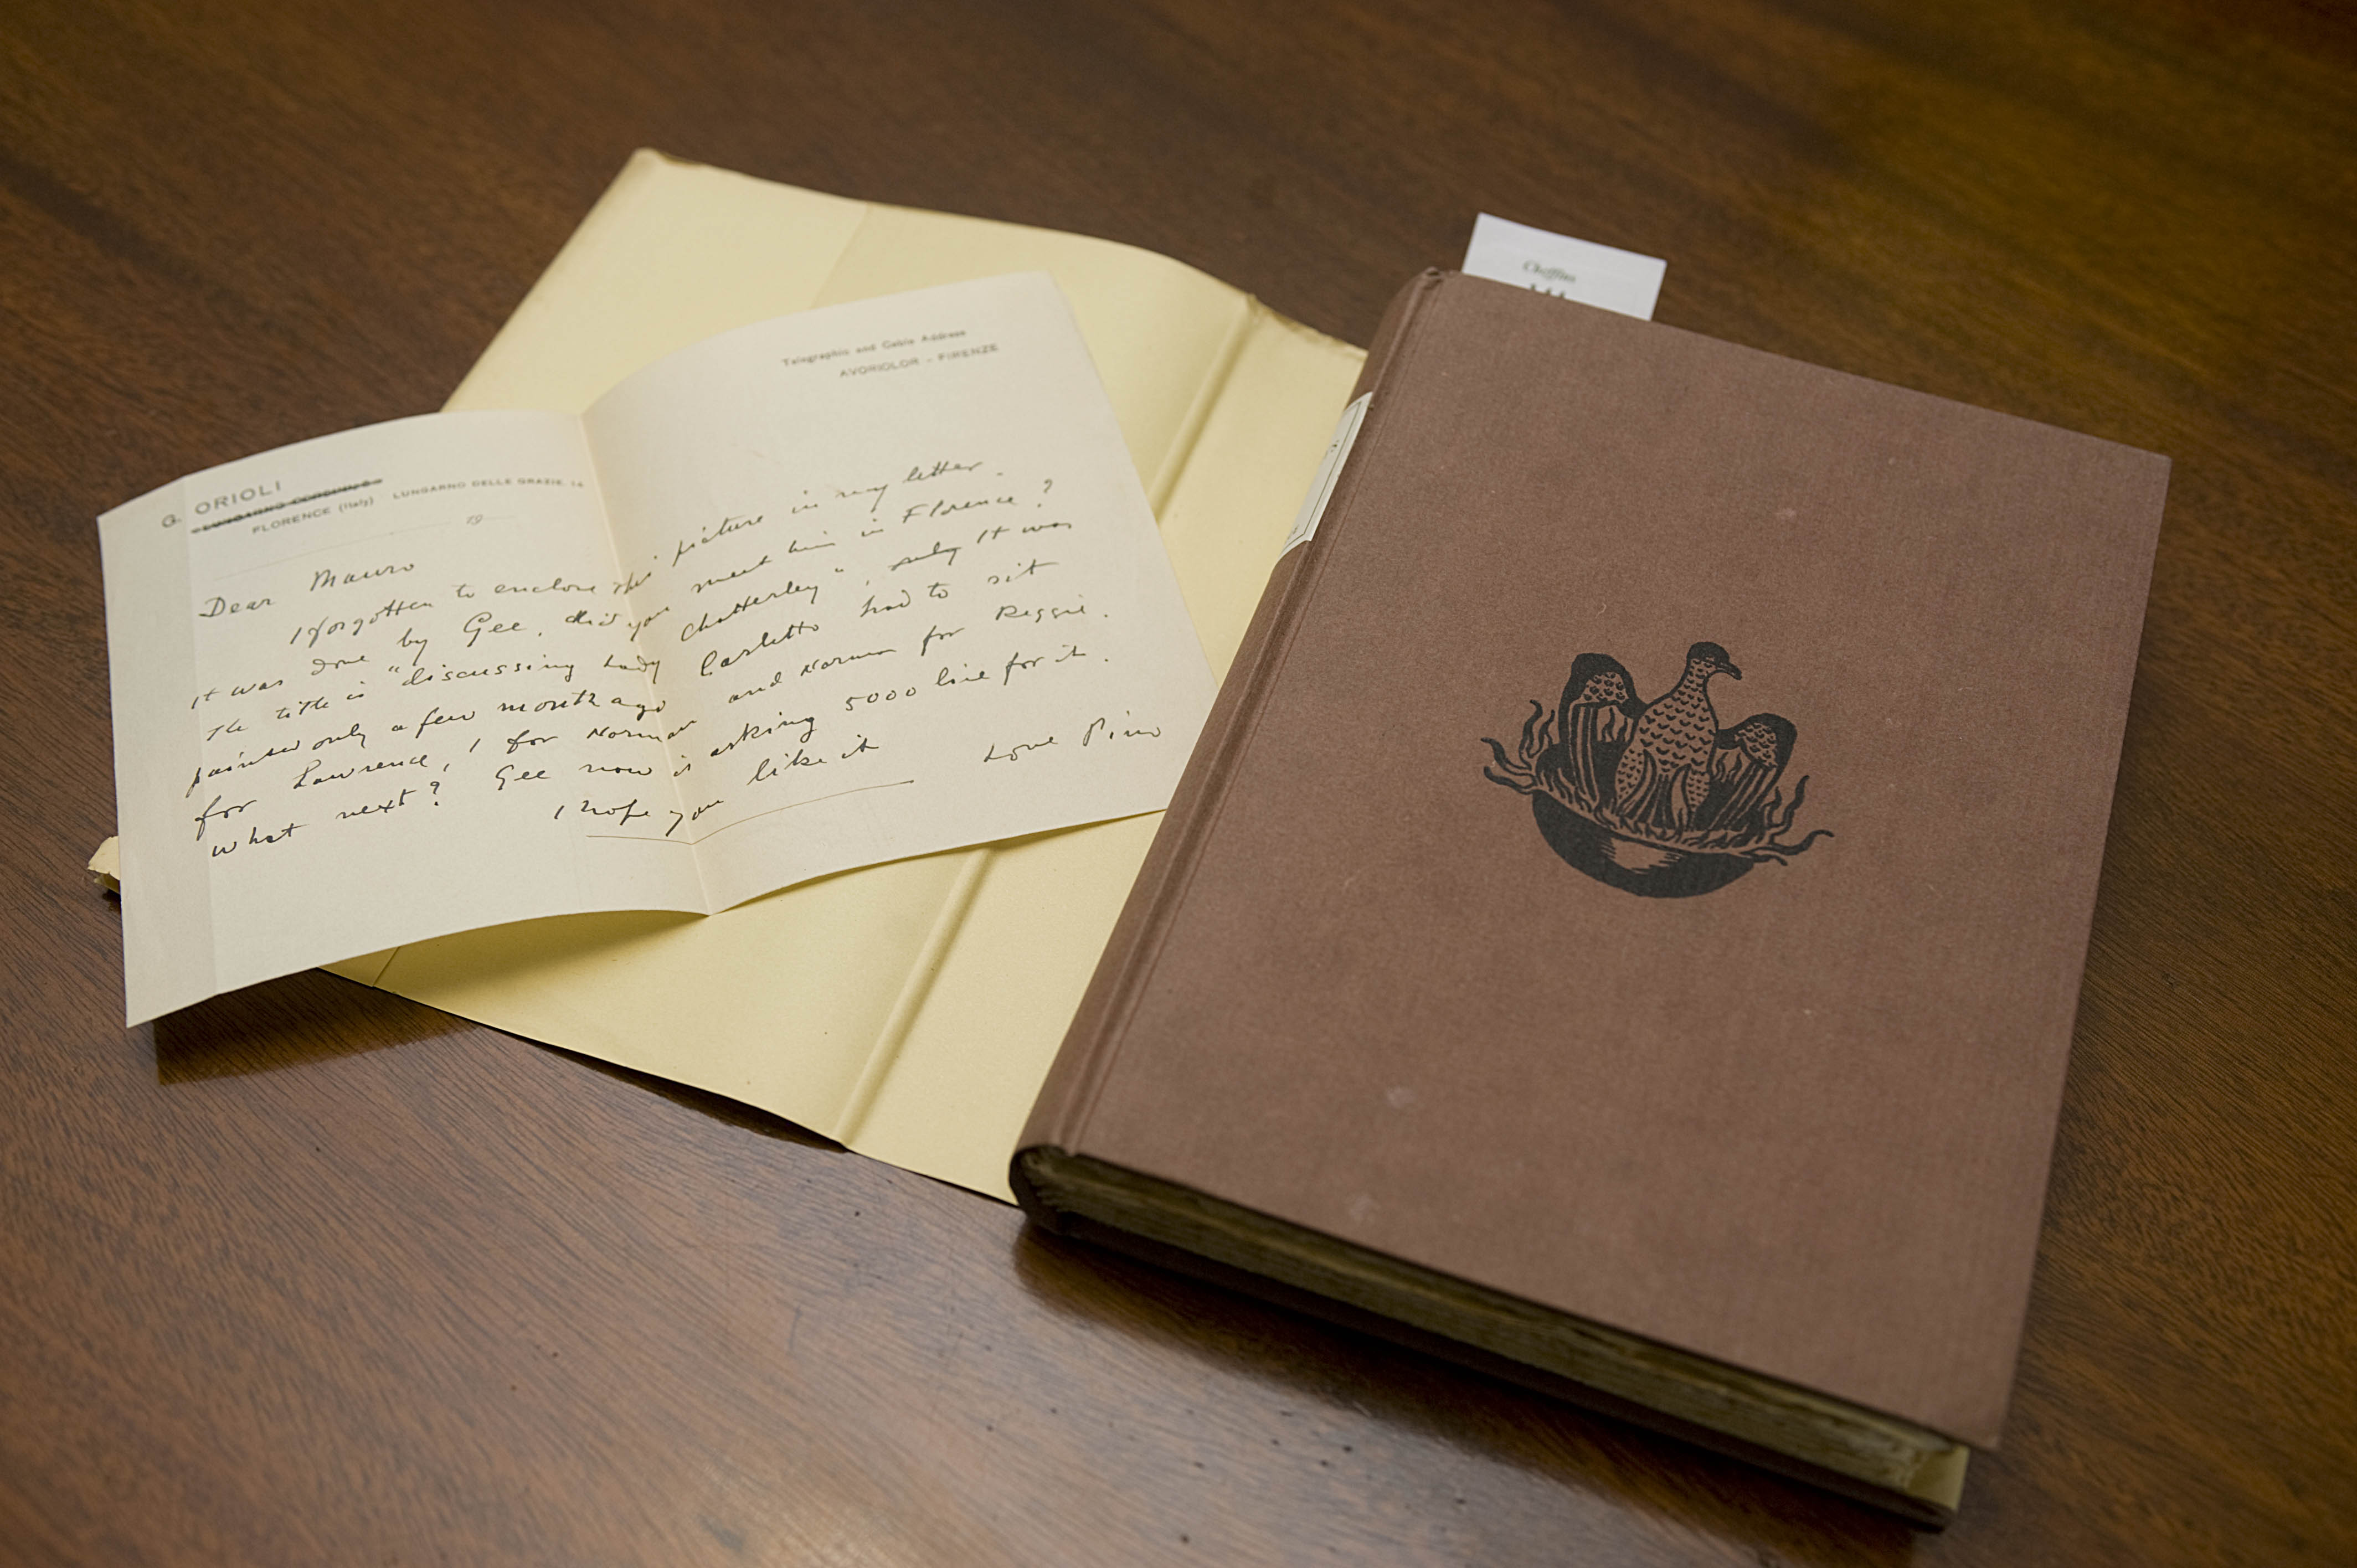 G. ORIOLI
LUNGARNO DELLE GRAZIE, 14
FLORENCE (Italy)
19
Telegraphic and Cable Address
AVORIOLOR - FIRENZE
Dear Mauro
I forgotten to enclose this picture in my letter.
It was done by Gee, did you meet him in Florence?
The title is "discussing Lady Chatterley", only It was
painted only a few month ago Carletto had to sit
for Lawrence, I for Norman and Norman for Reggie.
what next? Gee now is asking 5000 lire for it.
I hope you like it
Love Pino